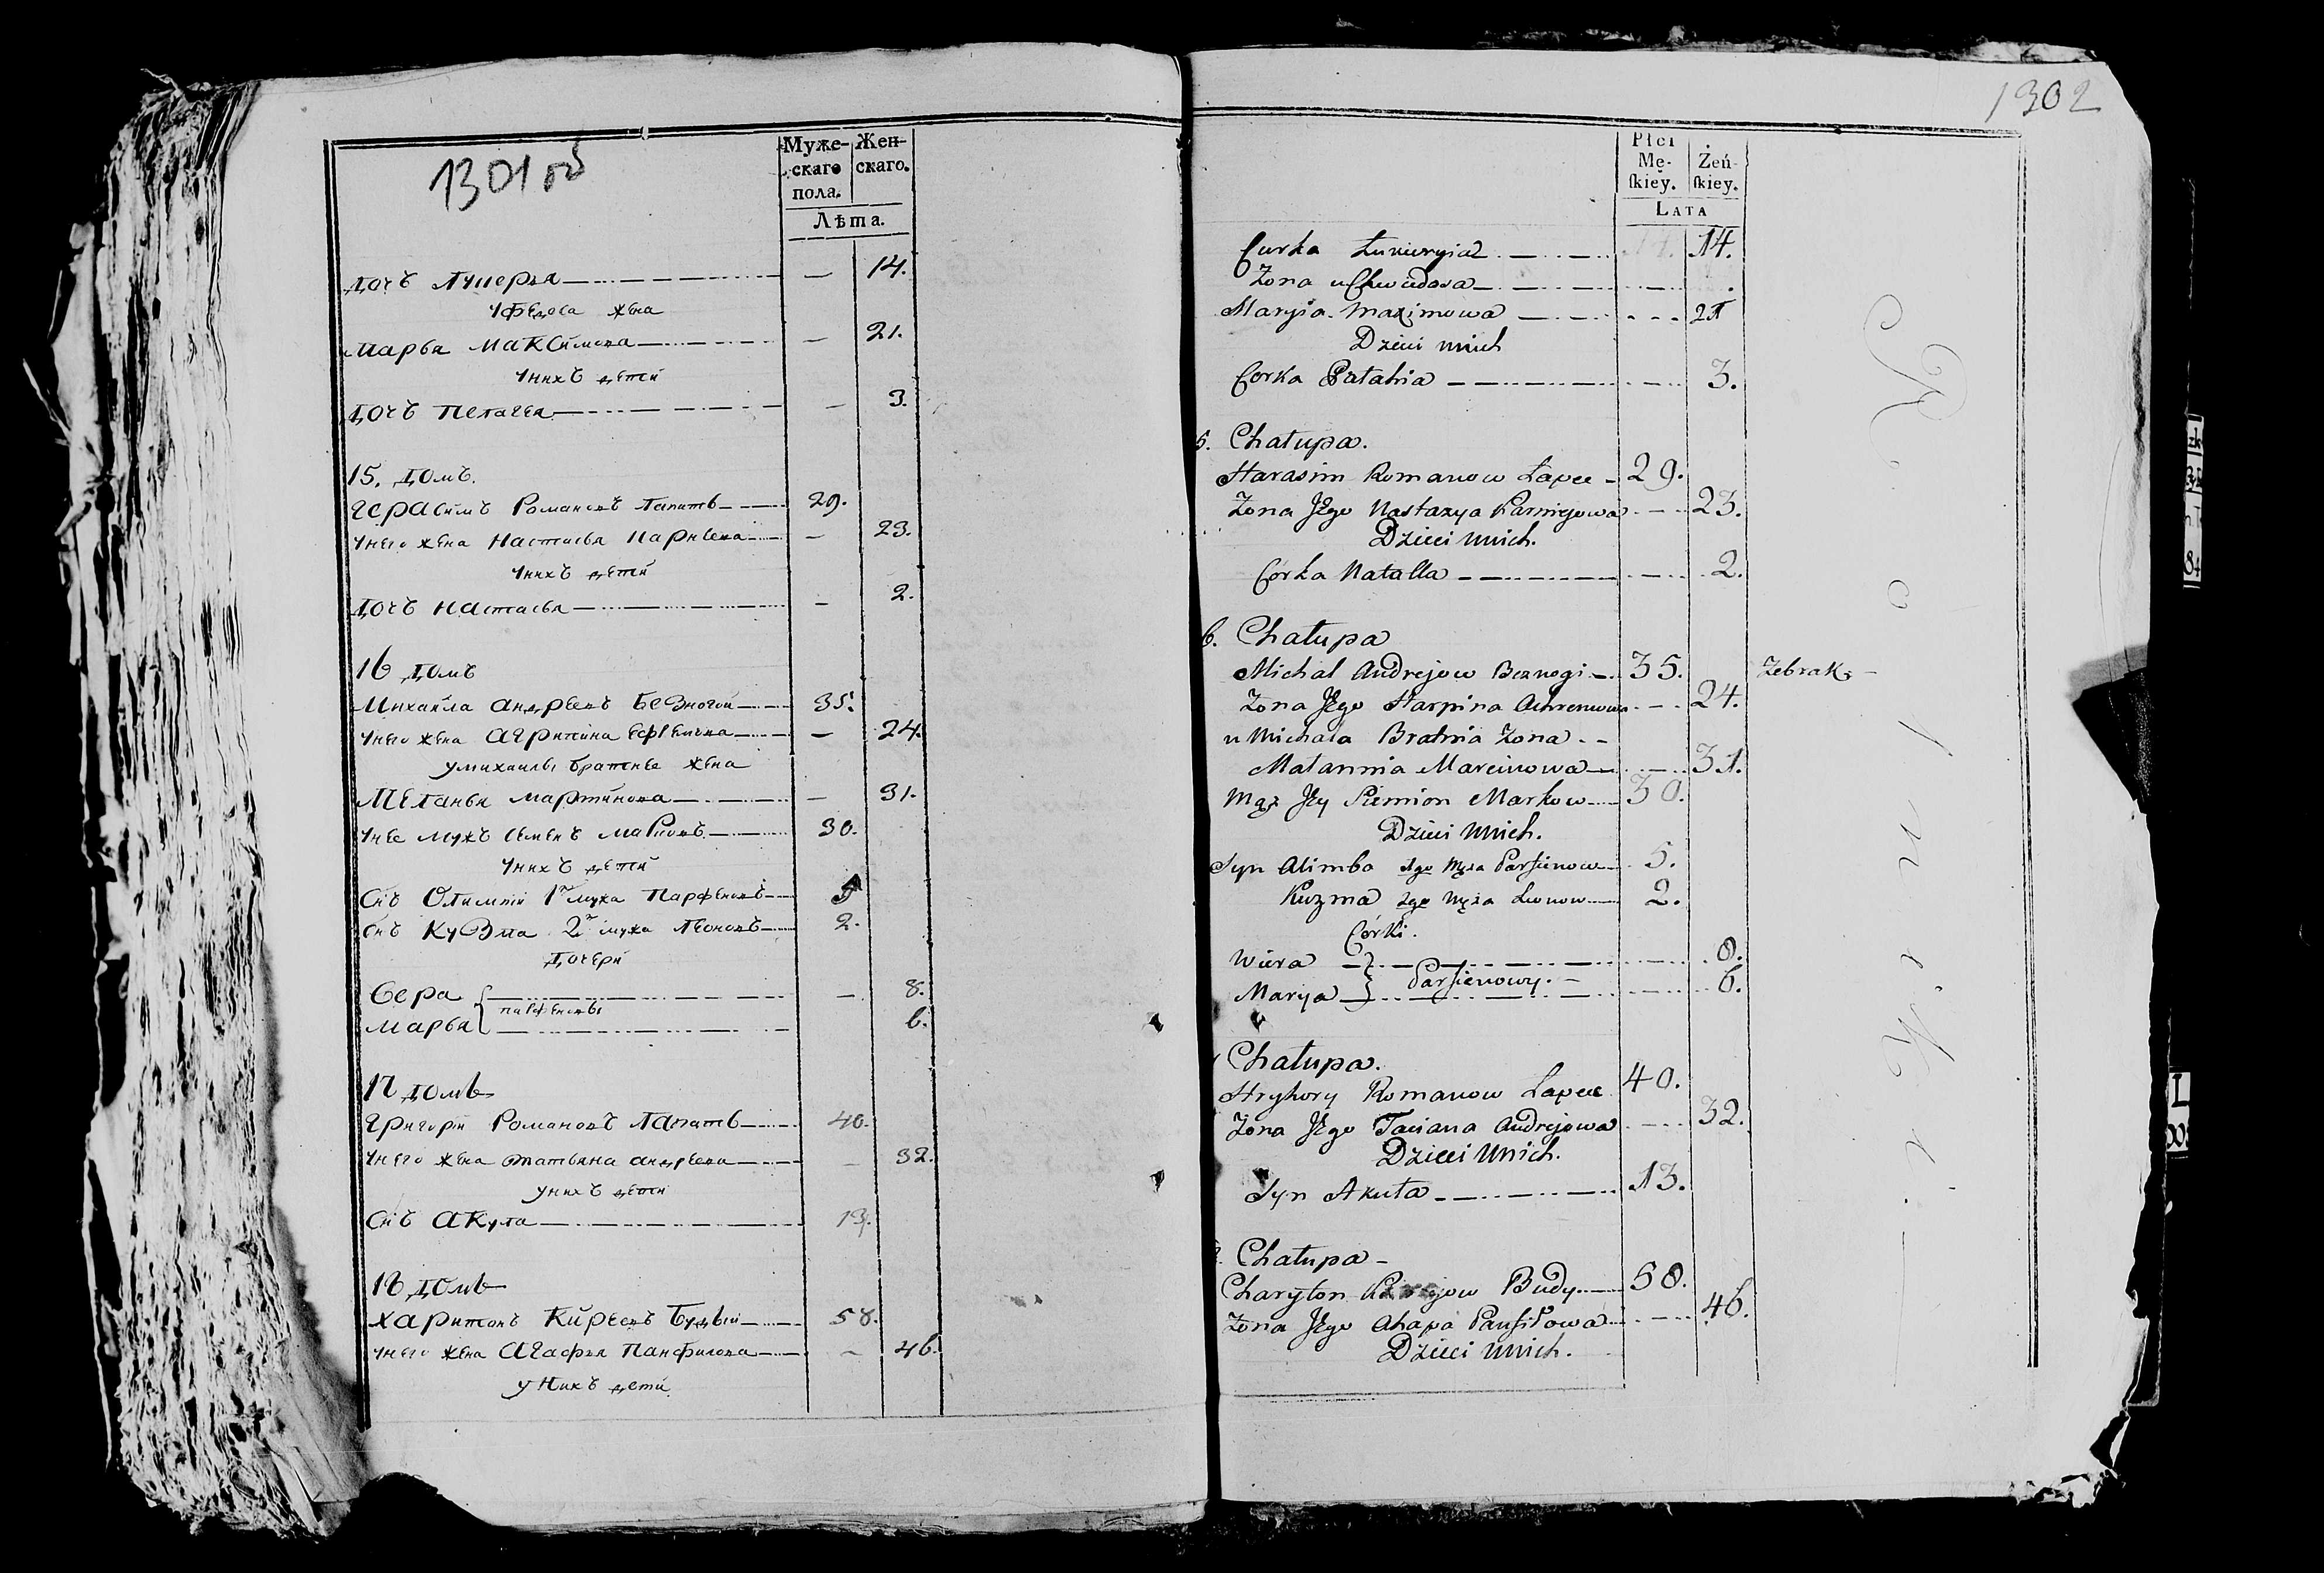 1301 об
Муже-
скаго
пола.
Жен-
скаго.
Лѣта.
дочь Лукерья — 14.
у Федоса жена
Марья Максимова — 21.
у нихъ дѣтей
дочь Пелагея — 3.
15. домъ.
Герасимъ Романовъ Лапать 29.
у него жена Настасья Парнеева — 23.
у нихъ дѣтей
дочь Настасья — 2.
16 домъ
Михайла Андреевъ Безногой 35.
у него жена Агрипина Ефремова — 24.
у михаилы братнее жена
Меланья Мартинова — 31.
у нее мужъ Семенъ Марковъ 30.
у нихъ дѣтей
Снъ Олимпий 1го мужа Парфеновъ 5
Снъ Кузма 2го мужа Леоновъ 2.
дочери
Вера — 8.
парфеновы
Марья 6.
17 домъ
Григорій Романовъ Лапать 40.
у него жена Татьяна Андреева — 32.
у нихъ дѣтей
Снъ Акула 13.
18 домъ
Харитонъ Киреевъ Будый 58.
у него жена Агафья Панфилова — 46.
у нихъ дети
1302
Płci
Mę-
ſkiey.
Żeń-
ſkiey.
LATA
Curka Łukieryia 14.
Zona u Chwiedosa
Maryia Maximowa 21
Dzieci unich
Corka Pałahia 3.
5. Chałupa.
Harasim Romanow Łapec 29.
Zona Jego Nastazya Parniejowa 23.
Dzieci Unich.
Corka Natalla 2.
6. Chałupa
Michał Andrejow Beznogi 35. Zebrak
Zona Jego Harpina Achremowa 24.
u Michała Bratnia Zona
Małannia Marcinowa 31.
Mąż Jey Siemion Markow 30.
Dzieci Unich.
Syn Alimba 1go Męża Parfienow 5.
Kuzma 2go Męża Leonow 2.
Córki.
Wiera 8.
Parfienowy.
Marya 6.
Chałupa.
Hryhory Romanow Łapec 40.
Zona Jego Taciana Andrejowa 32.
Dzieci Unich.
Syn Akuła 13.
Chałupa
Charyton Budy 58.
Zona Jego Ahapa Panfiłowa 46.
Dzieci Unich.
Rolniki